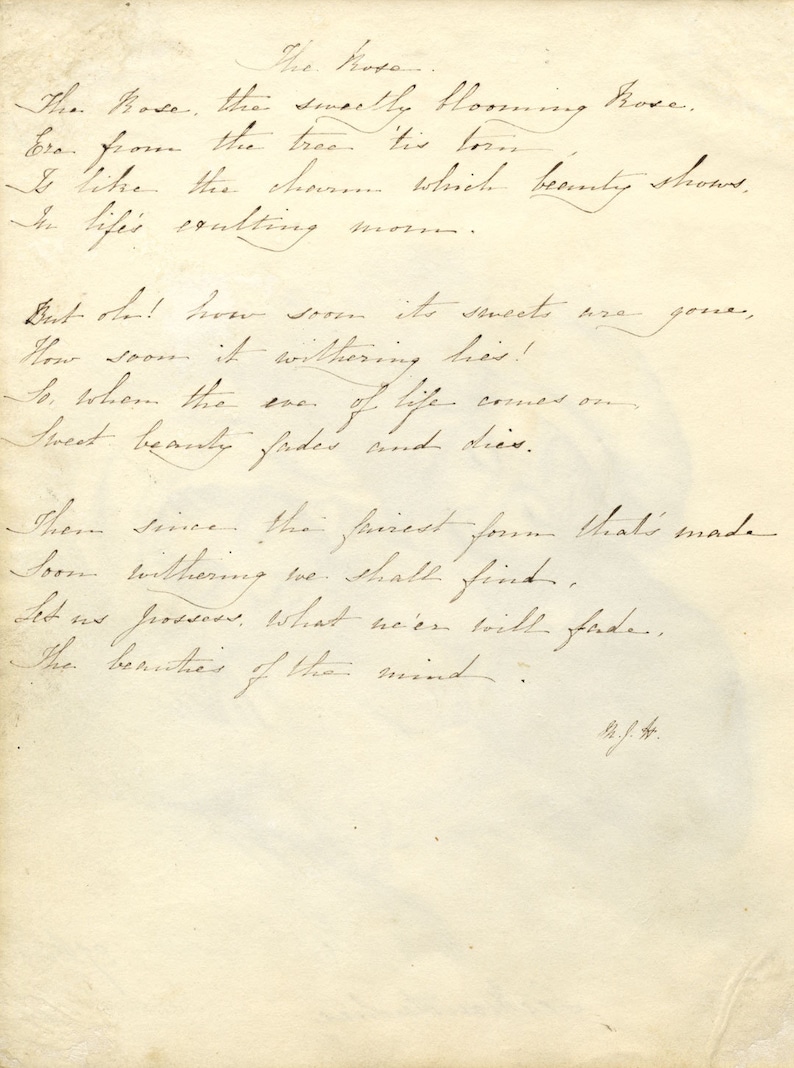 The Rose.
The Rose, the sweetly blooming Rose,
Ere from the tree 'tis torn,
Is like the charm which beauty shows,
In life's exulting morn.
But oh! how soon its sweets are gone,
How soon it withering lies!
So, when the eve of life comes on,
Sweet beauty fades and dies.
Then since the fairest form that's made
Soon withering we shall find,
Let us possess, what ne'er will fade,
The beauties of the mind.